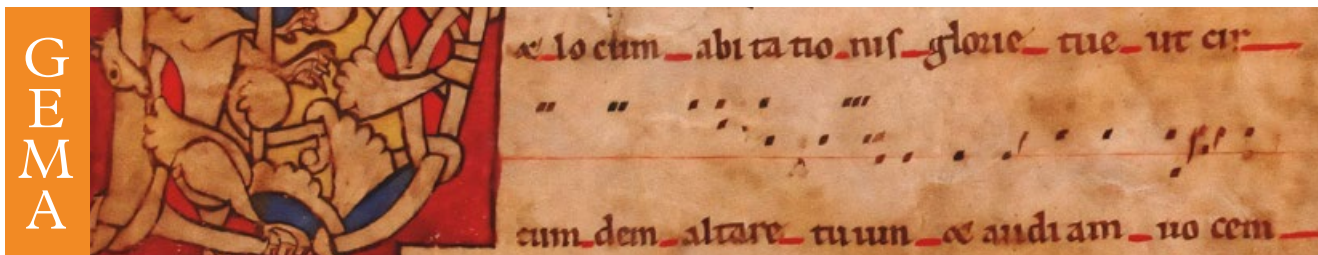 GEMA
& lo cum abi ta tio nis glorie tue ut cir
cum dem altare tuum & audi am uo cem